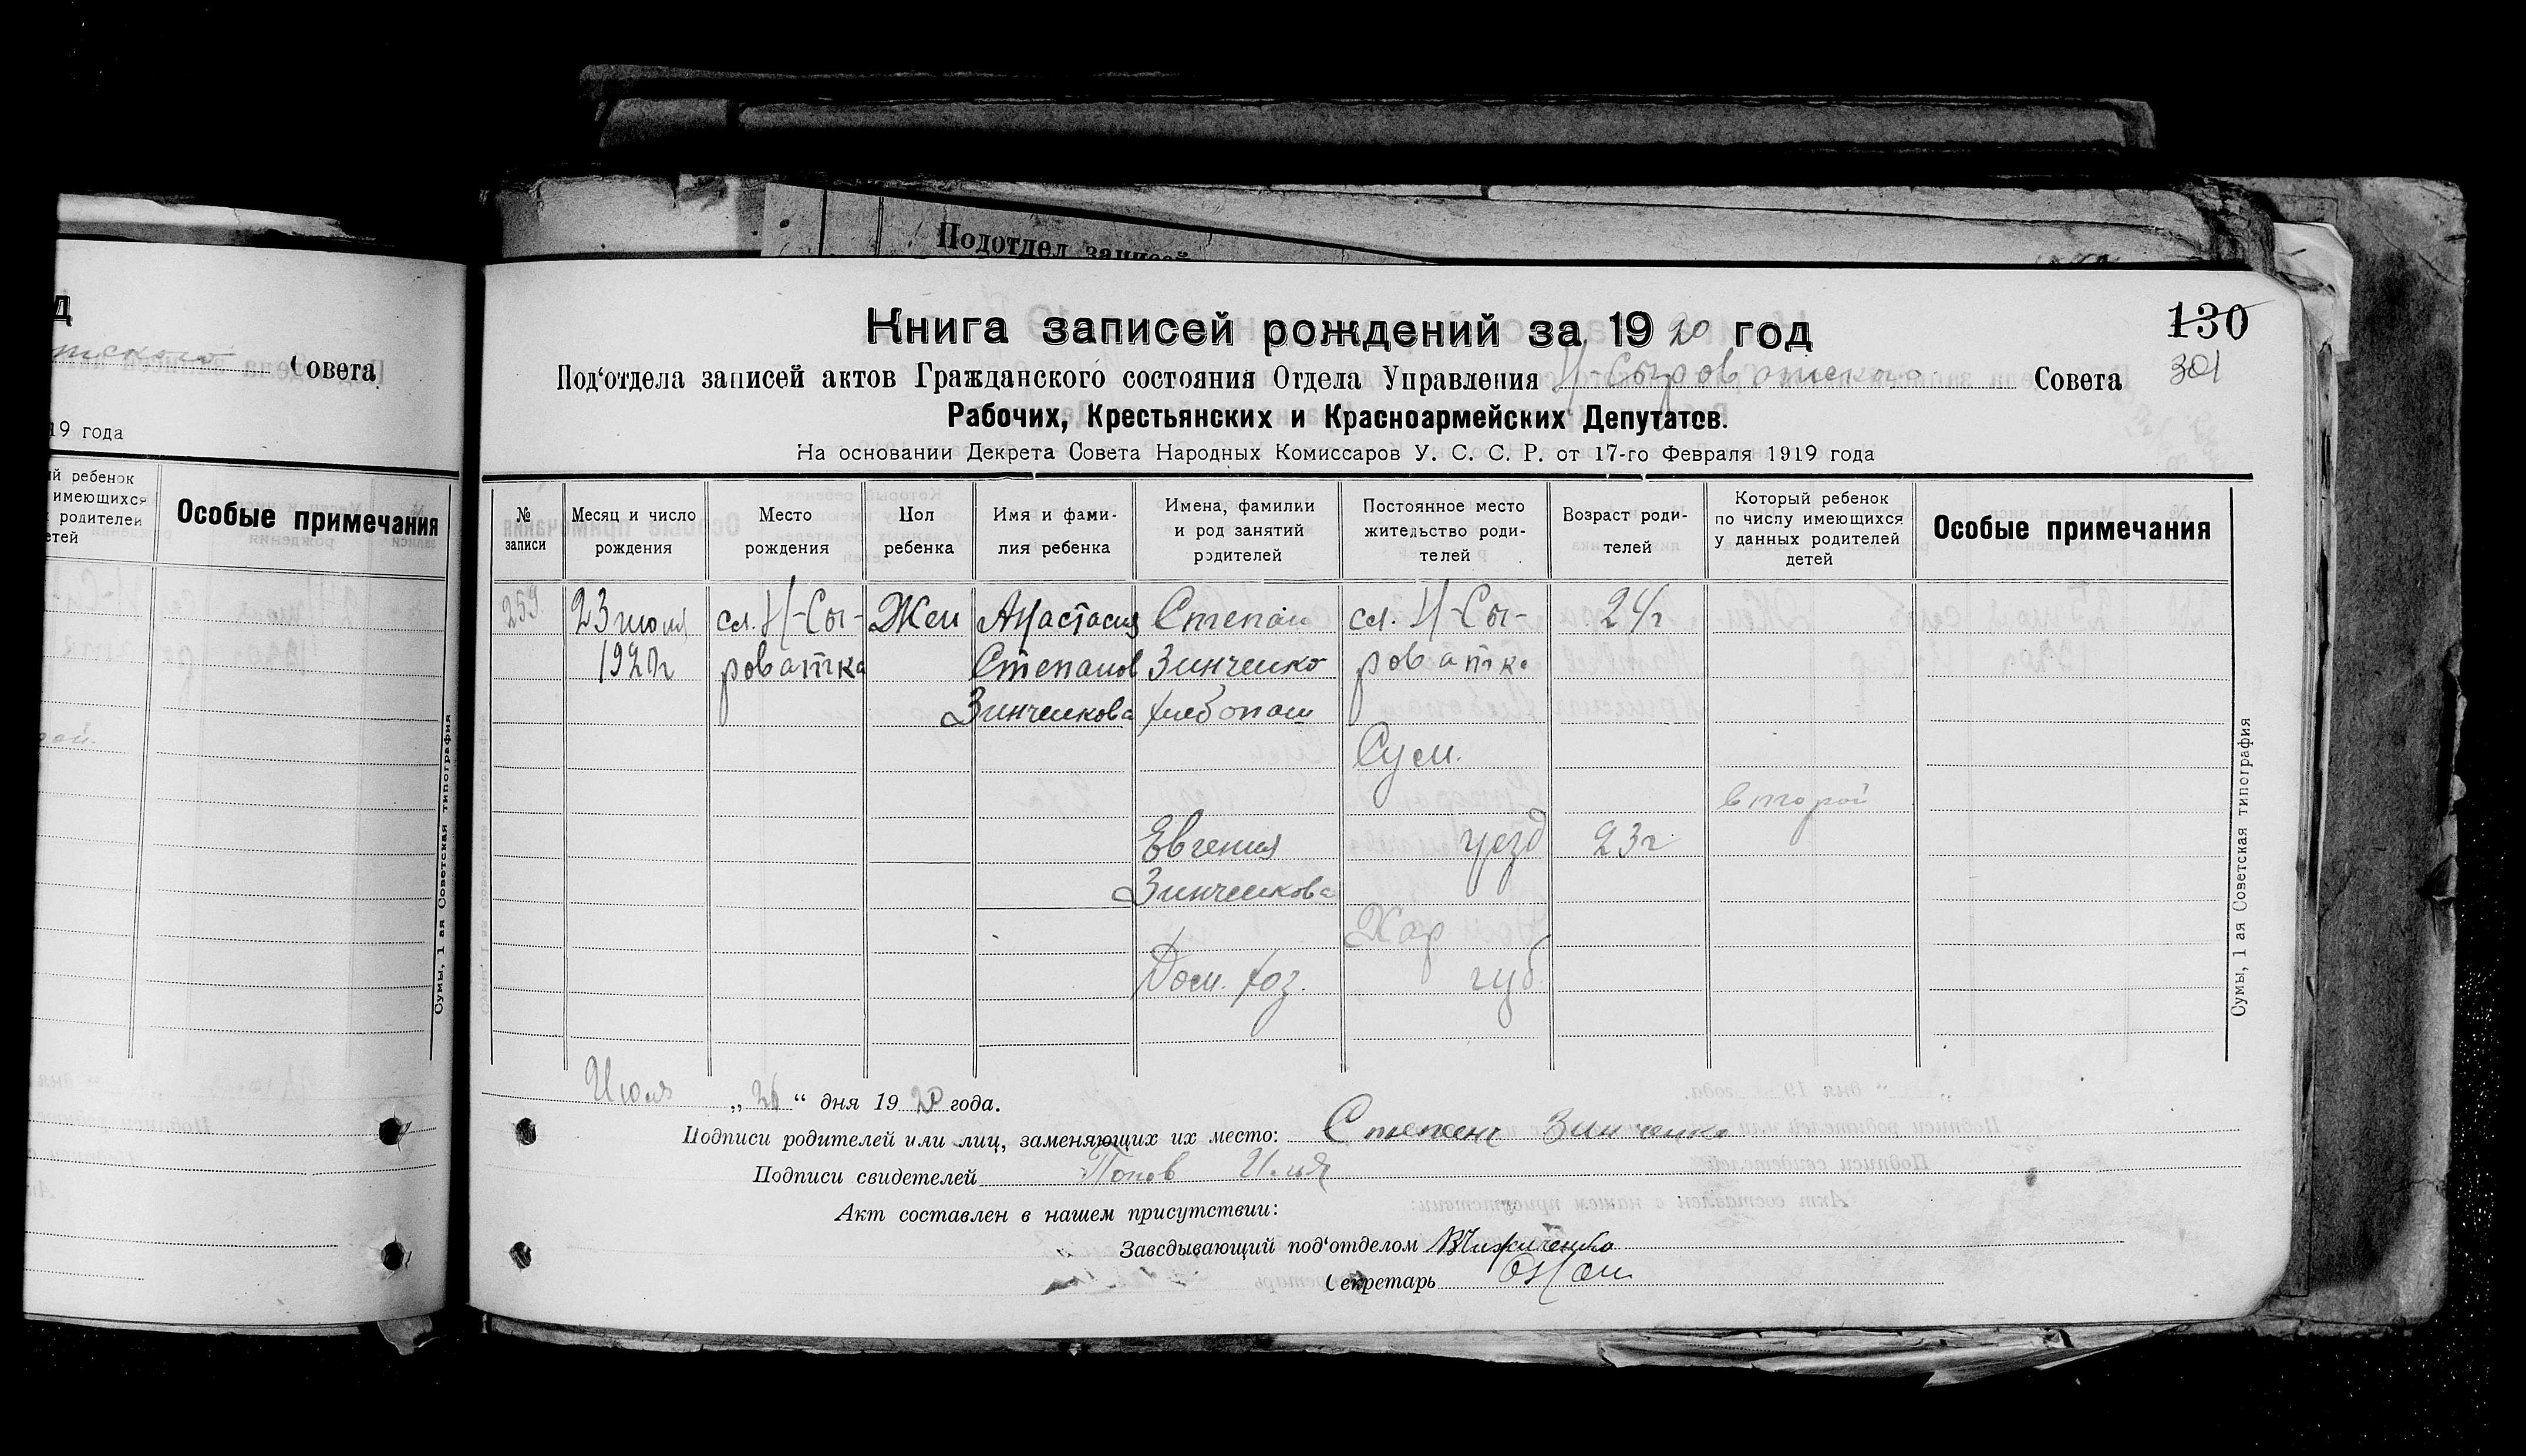 Подотдел записей
д
Совета
19 года
ий ребенок
имеющихся
родителей
етей
Особые примечания
Сумы, 1 ая Советская типография
Книга записей рождений за 1920 год
130
301
Под‘отдела записей актов Гражданского состояния Отдела Управления Н-Сыроватского Совета
Рабочих, Крестьянских и Красноармейских Депутатов.
На основании Декрета Совета Народных Комиссаров У. С. С. Р. от 17-го Февраля 1919 года
№ записи
Месяц и число рождения
Место рождения
Пол ребенка
Имя и фами-
лия ребенка
Имена, фамилии
и род занятий
родителей
Постоянное место
жительство роди-
телей
Возраст роди-
телей
Который ребенок
по числу имеющихся
у данных родителей
детей
Особые примечания
259. 23 июля сл. Н-Сы- Жен Анастасия Степан сл. Н-Сы- 24г
1920г роватка Степанов Зинченко роватка
Зинченкова хлебопаш
Сум.
второй
Евгения уезд 23г
Зинченкова
Хар
Дом. хоз. губ.
Сумы, 1 ая Советская типография
Июля „26“ дня 1920 года.
Подписи родителей или лиц, заменяющих их место: Степанъ Зинченко
Подписи свидетелей Попов Илья
Акт составлен в нашем присутствии:
Заведывающий под‘отделом
Секретарь